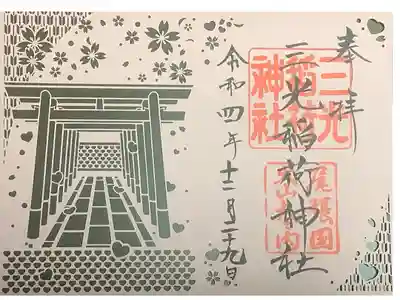 奉拝
三光稲荷神社
令和四年十二月二十九日
三光
稲荷
神社
尾張国
犬山城内